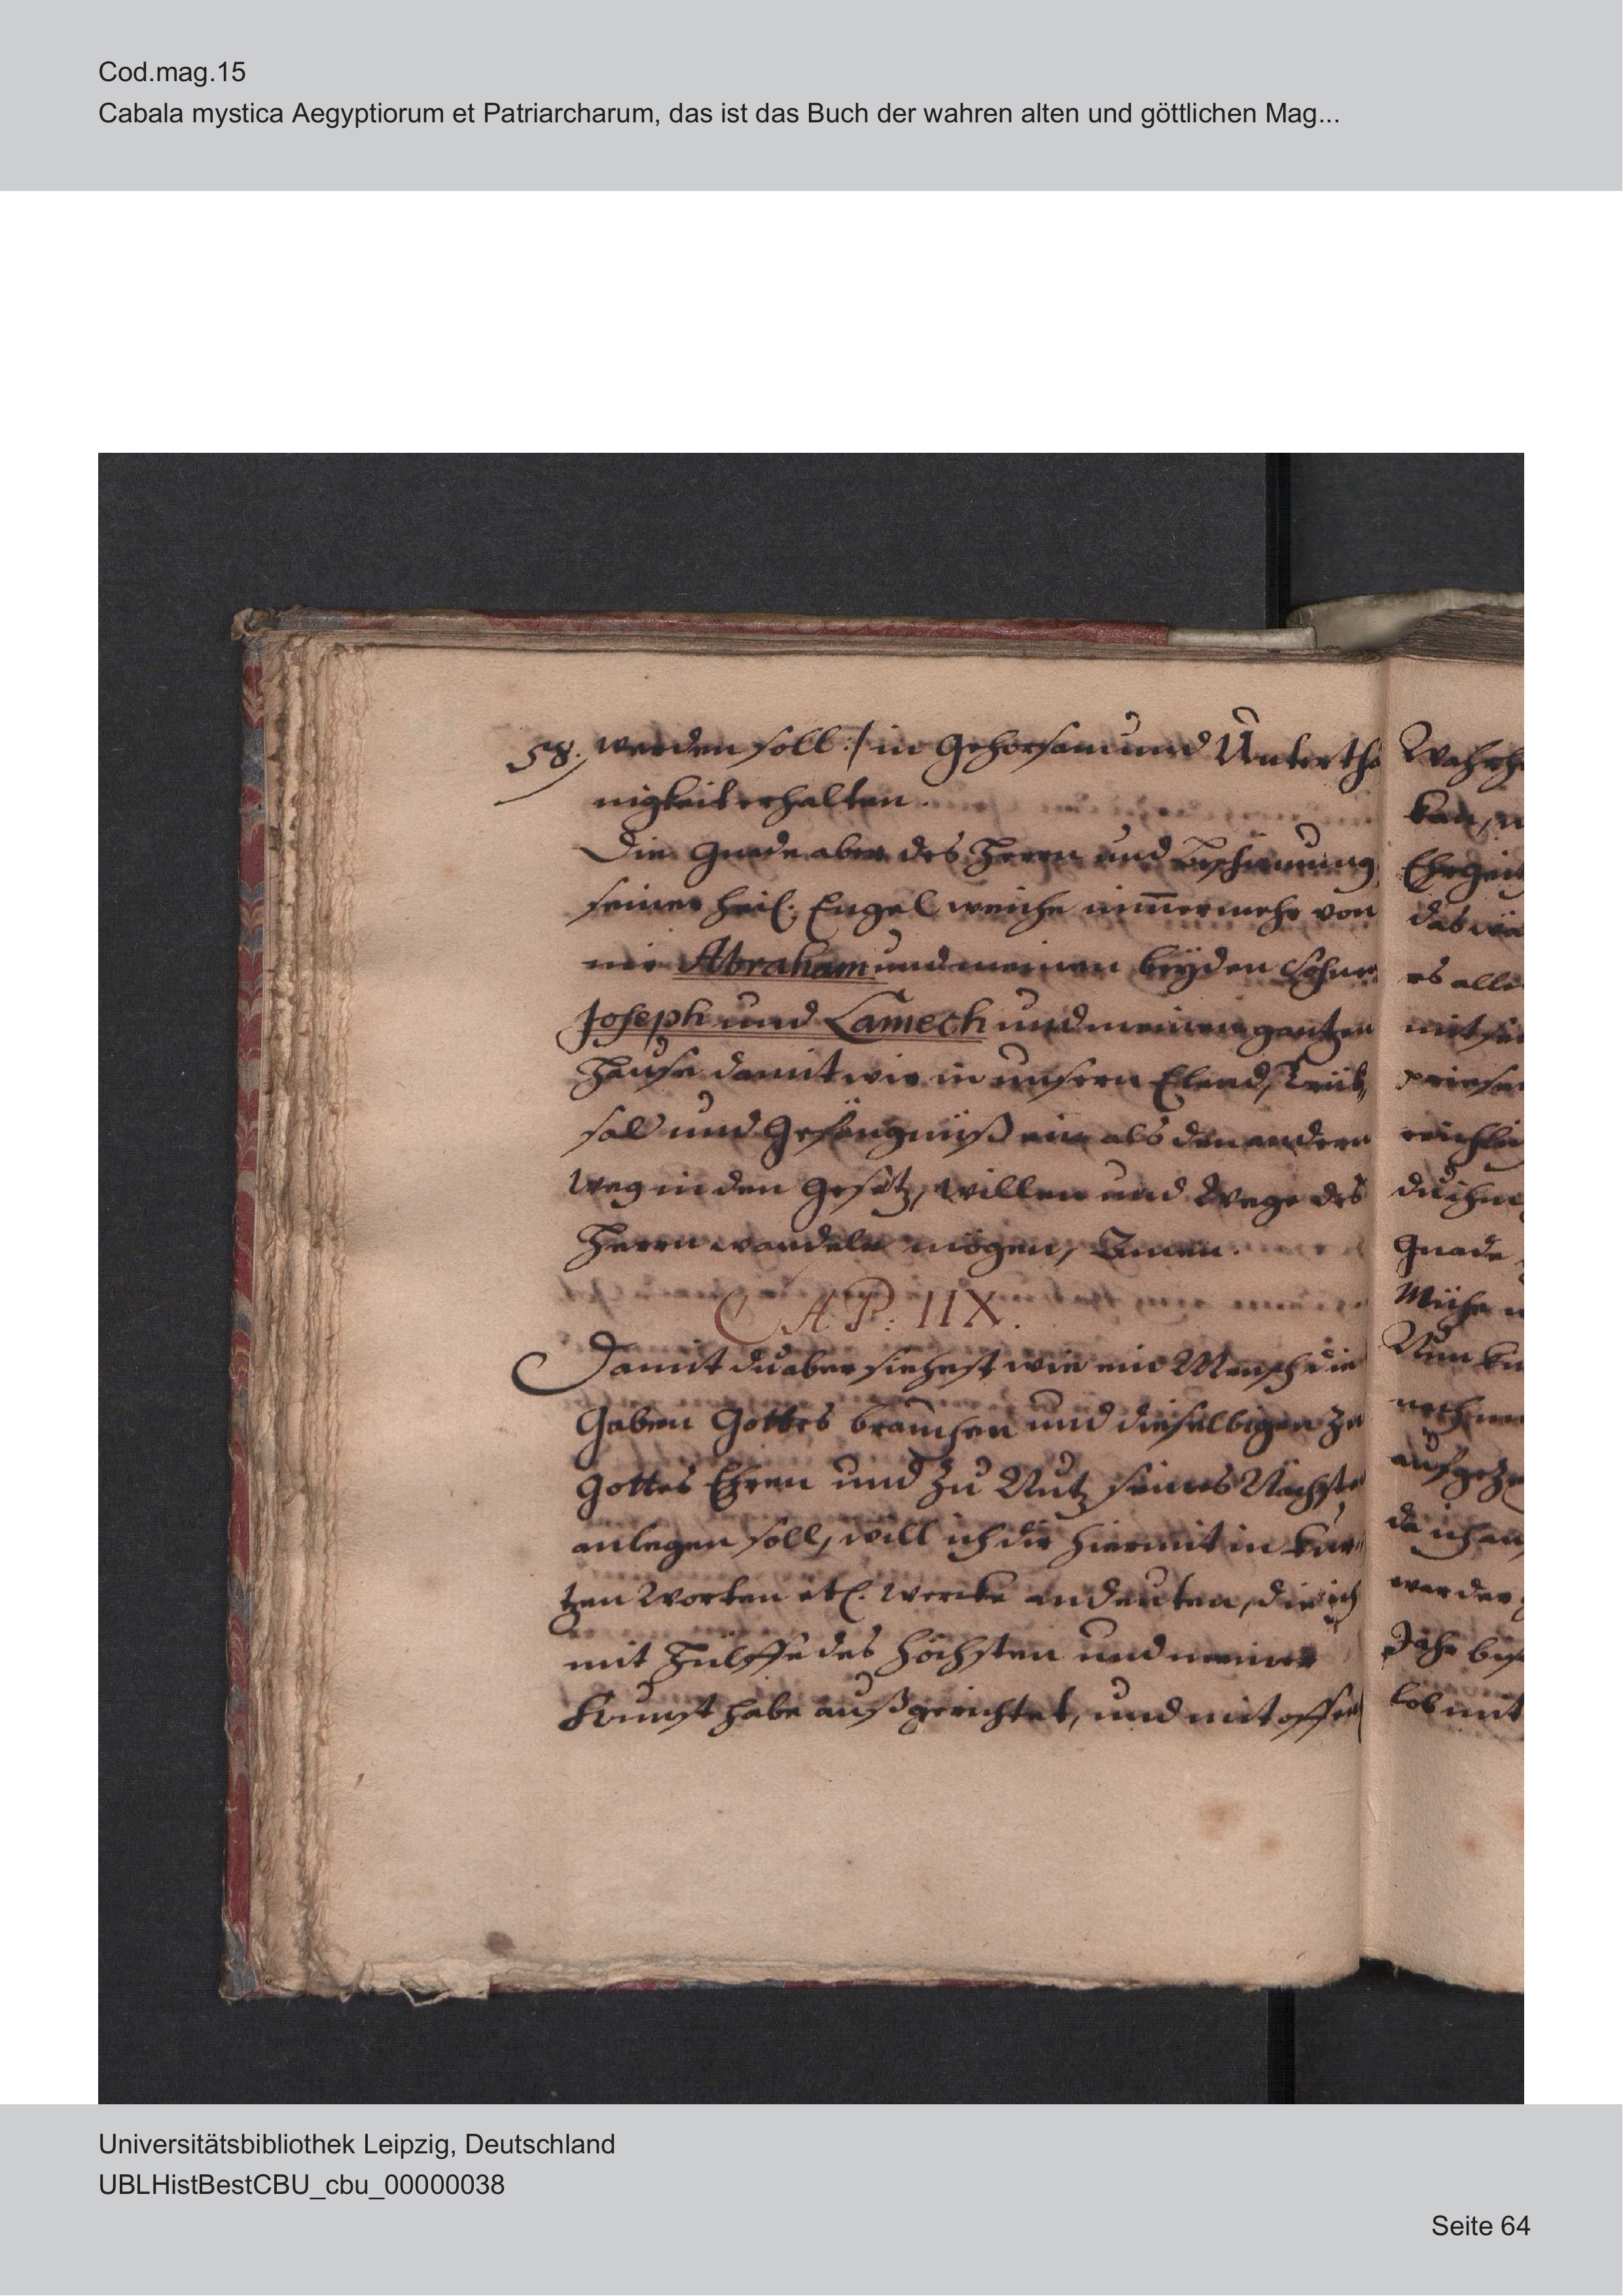 Cod.mag.15
Cabala mystica Aegyptiorum et Patriarcharum, das ist das Buch der wahren alten und göttlichen Mag...
58. werden soll :/ in Gehorsam und Untertha
nigkeit erhalten.
Die Gnade aber des Herrn und Beschirmung
seiner heil. Engel weiche nim̅ermehr von
mir Abraham und meinen beyden Söhnen
Joseph und Lamech und meinem gantzen
Hause damit wir in unsern Elend, Trüb„
sal und Gefängnüß ein als den andern
Weg in den Gesetz, Willen und Wege des
Herrn wandeln mögen, Amen.
CAP: IIX.
Damit du aber siehest wie ein Mensch die
Gaben Gottes brauchen und dieselbigen zu
Gottes Ehren und zu Nutz seines Nächste
anlegen soll, will ich dir hiermit in kur„
tzen Worten etl. Wercke andeuten, die ich
mit Hülffe des Höchsten und meiner
Kunst habe außgerichtet, und mit offen
kan,
Ehrgeitz
es alle
mit
du ihm
Gnade
Mühe
Nun
da ich
werden
Jahr
lob mit
Universitätsbibliothek Leipzig, Deutschland
UBLHistBestCBU_cbu_00000038
Seite 64